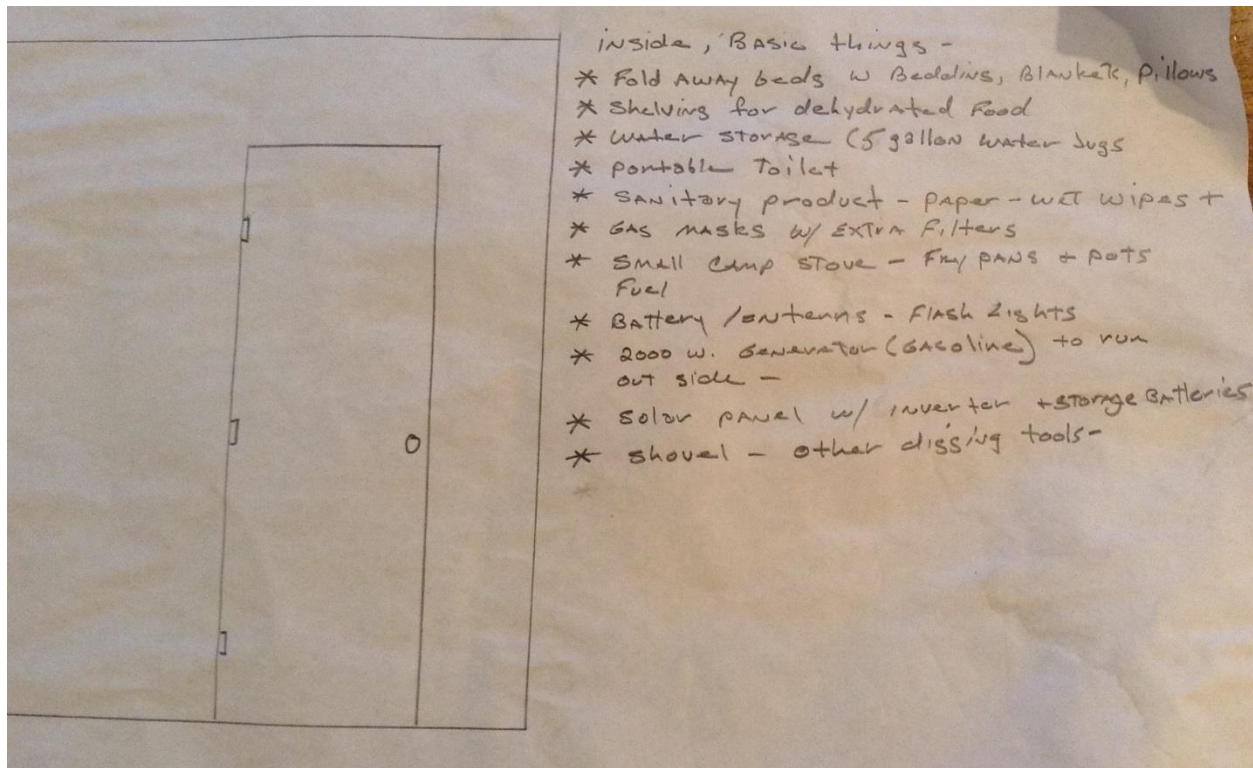 inside, Basic things -
* Fold Away beds w Bedding, Blankets, Pillows
* Shelving for dehydrated Food
* Water storage (5 gallon water Jugs
* Portable Toilet
* Sanitary product - paper - wet wipes +
* GAS MASKS w/ EXTRA Filters
* Small Camp Stove - Fry pans + pots
Fuel
* Battery lanterns - Flash Lights
* 2000 w. Generator (Gasoline) to run
out side -
* Solar panel w/ inverter + storage Batteries
* Shovel - other digging tools -
*